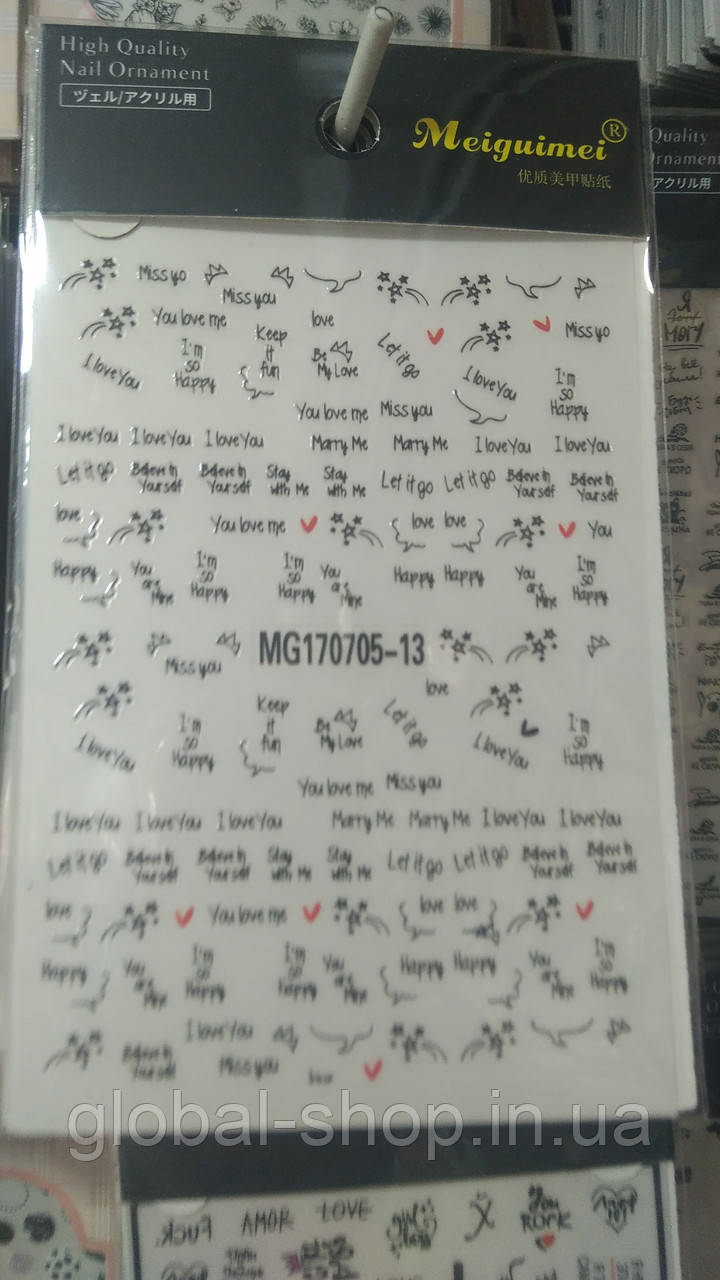 High Quality
Nail Ornament
ヅェル/アクリル用
Meiguimei®
优质美甲贴纸
Quality
Ornament
アクリル用
Miss yo
Miss you
You love me
love
Miss yo
Keep
it
fun
I'm
so
Happy
Be
My Love
Let it go
I love You
I love You
I'm
so
Happy
You love me Miss you
I love You I love You I love You Marry Me Marry Me I love You I love You
Let it go Believe In Yourself Believe In Yourself Stay With Me Stay With Me Let it go Let it go Believe In Yourself Believe In Yourself
love You love me love love You
Happy You are Mine I'm so Happy I'm so Happy You are Mine Happy Happy You are Mine I'm so Happy
Miss you MG170705-13
love
Keep
it
fun
I love You I'm so Happy Be My Love Let it go I love You I'm so Happy
You love me Miss you
I love You I love You I love You Marry Me Marry Me I love You I love You
Let it go Believe In Yourself Believe In Yourself Stay With Me Stay With Me Let it go Let it go Believe In Yourself Believe In Yourself
love You love me love love
Happy You are Mine I'm so Happy I'm so Happy You are Mine Happy Happy You are Mine I'm so Happy
I love You
Believe In Yourself Miss you love
global-shop.in.ua
Fuck. AMOR LOVE You ROCK